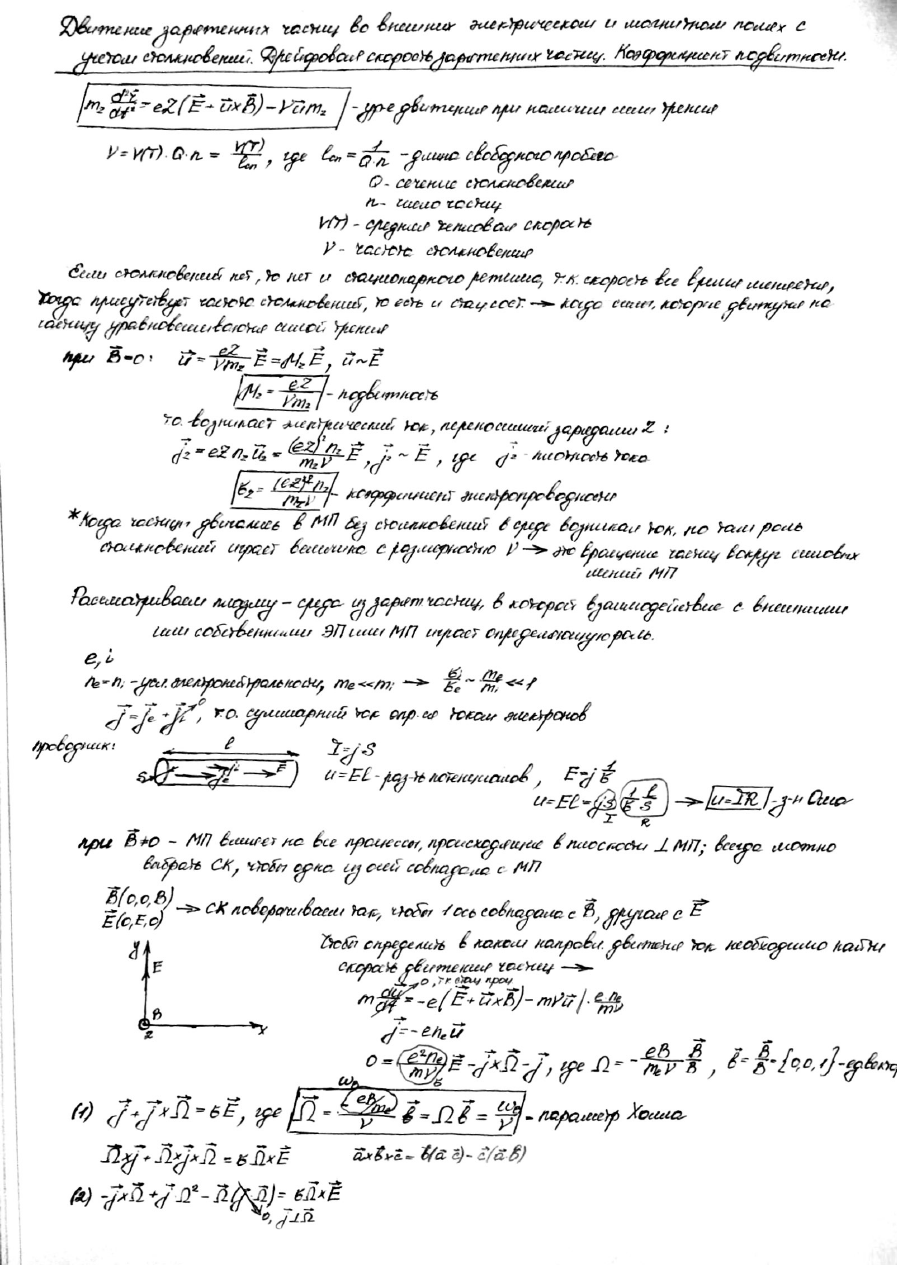 Движение заряженных частиц во внешних электрическом и магнитном полях с
учетом столкновений. Дрейфовая скорость заряженных частиц. Коэффициент подвижности.
m₂ d²r⃗/dt² = eZ(E⃗ + u⃗×B⃗) − νu⃗m₂ - ур-е движения при наличии силы трения
ν = V(T)·Q·n = V(T)/lсп, где lсп = 1/(Q·n) - длина свободного пробега
Q - сечение столкновения
n - число частиц
V(T) - средняя тепловая скорость
ν - частота столкновения
Если столкновений нет, то нет и стационарного режима, т.к. скорость все время меняется,
когда присутствует частота столкновений, то есть и стац. сост. → когда силы, которые движут на
частицу уравновешиваются силой трения
при B⃗=0: u⃗ = eZ/(νm₂) E⃗ = μ₂E⃗, u⃗ ~ E⃗
μ₂ = eZ/(νm₂) - подвижность
т.о. возникает электрический ток, переносимый зарядами Z:
j⃗₂ = eZ n₂ u⃗₂ = (eZ)² n₂/(m₂ν) E⃗, j⃗₂ ~ E⃗, где j⃗₂ - плотность тока
σ₂ = (eZ)² n₂/(m₂ν) - коэффициент электропроводности
*Когда частицы двигались в МП без столкновений в среде возникал ток, но там роль
столкновений играет величина с размерностью ν → это вращение частиц вокруг силовых
линий МП
Рассматриваем плазму - среда из заряж частиц, в которой взаимодействие с внешними
или собственными ЭП или МП играет определяющую роль.
e, i
nₑ = nᵢ - усл. электронейтральности, mₑ << mᵢ → σᵢ/σₑ ~ mₑ/mᵢ << 1
j⃗ = j⃗ₑ + j⃗ᵢ 0, т.о. суммарный ток опр-ся током электронов
проводник: l I = jS
S jₑ E u = El - раз-ть потенциалов, E = j 1/σ
u = El = jS 1/σ l/S → u = IR - з-н Ома
I R
при B⃗≠0 - МП влияет на все процессы, происходящие в плоскости ⊥ МП; всегда можно
выбрать СК, чтобы одна из осей совпадала с МП
B⃗(0,0,B)
E⃗(0,E,0) → СК поворачиваем так, чтобы 1 ось совпадала с B⃗, другая с E⃗
y E B z x
Чтобы определить в каком направл. движется ток необходимо найти
скорость движения частиц →
0, т.к. стац. проц
m du⃗/dt = −e(E⃗ + u⃗×B⃗) − mνu⃗ | · e nₑ/(mν)
j⃗ = −e nₑ u⃗
0 = (e²nₑ/(mν)) E⃗ − j⃗×Ω⃗ − j⃗, где Ω = −eB/(mₑν) B⃗/B, b⃗ = B⃗/B = {0,0,1} - ед вектор
σ
ω₀
(1) j⃗ + j⃗×Ω⃗ = σE⃗, где Ω⃗ = −(eB/mₑ)/ν b⃗ = Ω b⃗ = ω₀/ν - параметр Холла
Ω⃗×j⃗ + Ω⃗×j⃗×Ω⃗ = σ Ω⃗×E⃗ a⃗×b⃗×c⃗ = b⃗(a⃗ c⃗) − c⃗(a⃗ b⃗)
(2) −j⃗×Ω⃗ + j⃗ Ω² − Ω⃗(j⃗ Ω⃗) = σΩ⃗×E⃗
0, j⃗⊥Ω⃗